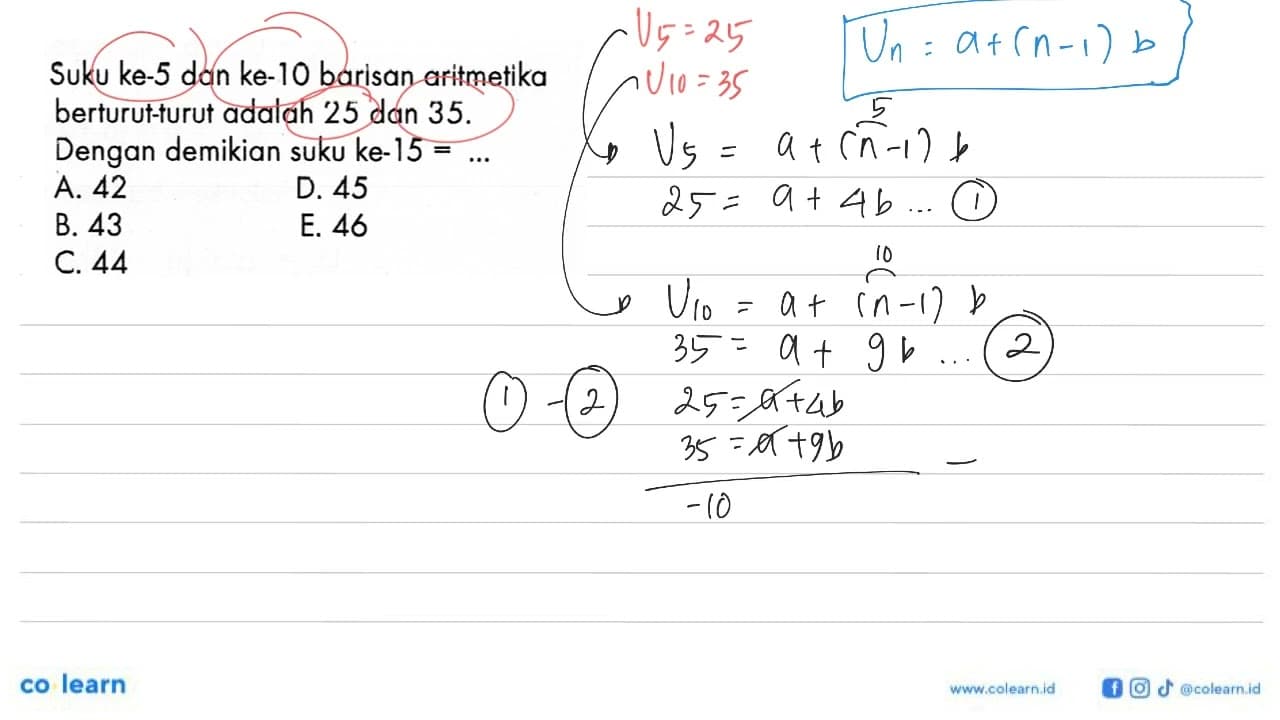 Suku ke-5 dan ke-10 barisan aritmetika
berturut-turut adalah 25 dan 35.
Dengan demikian suku ke-15 = ...
A. 42 D. 45
B. 43 E. 46
C. 44
U5 = 25
U10 = 35
Un = a + (n-1) b
5
U5 = a + (n-1) b
25 = a + 4b ... 1
10
U10 = a + (n-1) b
35 = a + 9b ... 2
1 - 2 25 = a + 4b
35 = a + 9b -
-10
co learn
www.colearn.id @colearn.id